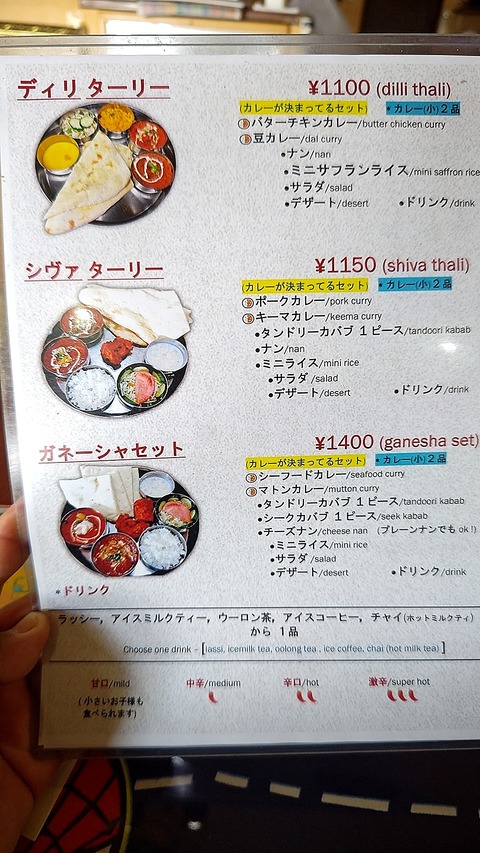 ディリ ターリー
¥1100 (dilli thali)
カレーが決まってるセット *カレー(小)2品
バターチキンカレー/butter chicken curry
豆カレー/dal curry
●ナン/nan
●ミニサフランライス/mini saffron rice
●サラダ/salad
●デザート/desert ●ドリンク/drink
シヴァ ターリー
¥1150 (shiva thali)
カレーが決まってるセット *カレー(小)2品
ポークカレー/pork curry
キーマカレー/keema curry
●タンドリーカバブ 1ピース/tandoori kabab
●ナン/nan
●ミニライス/mini rice
●サラダ /salad
●デザート/desert ●ドリンク/drink
ガネーシャセット
¥1400 (ganesha set)
カレーが決まってるセット *カレー(小)2品
シーフードカレー/seafood curry
マトンカレー/mutton curry
●タンドリーカバブ 1ピース/tandoori kabab
●シークカバブ 1ピース/seek kabab
●チーズナン/cheese nan (プレーンナンでも ok!)
●ミニライス/mini rice
●サラダ /salad
●デザート/desert ●ドリンク/drink
*ドリンク
ラッシー, アイスミルクティー, ウーロン茶, アイスコーヒー, チャイ(ホットミルクティ)
から 1品
Choose one drink - [lassi, icemilk tea, oolong tea , ice coffee, chai (hot milk tea) ]
甘口/mild 中辛/medium 辛口/hot 激辛/super hot
(小さいお子様も
食べられます)